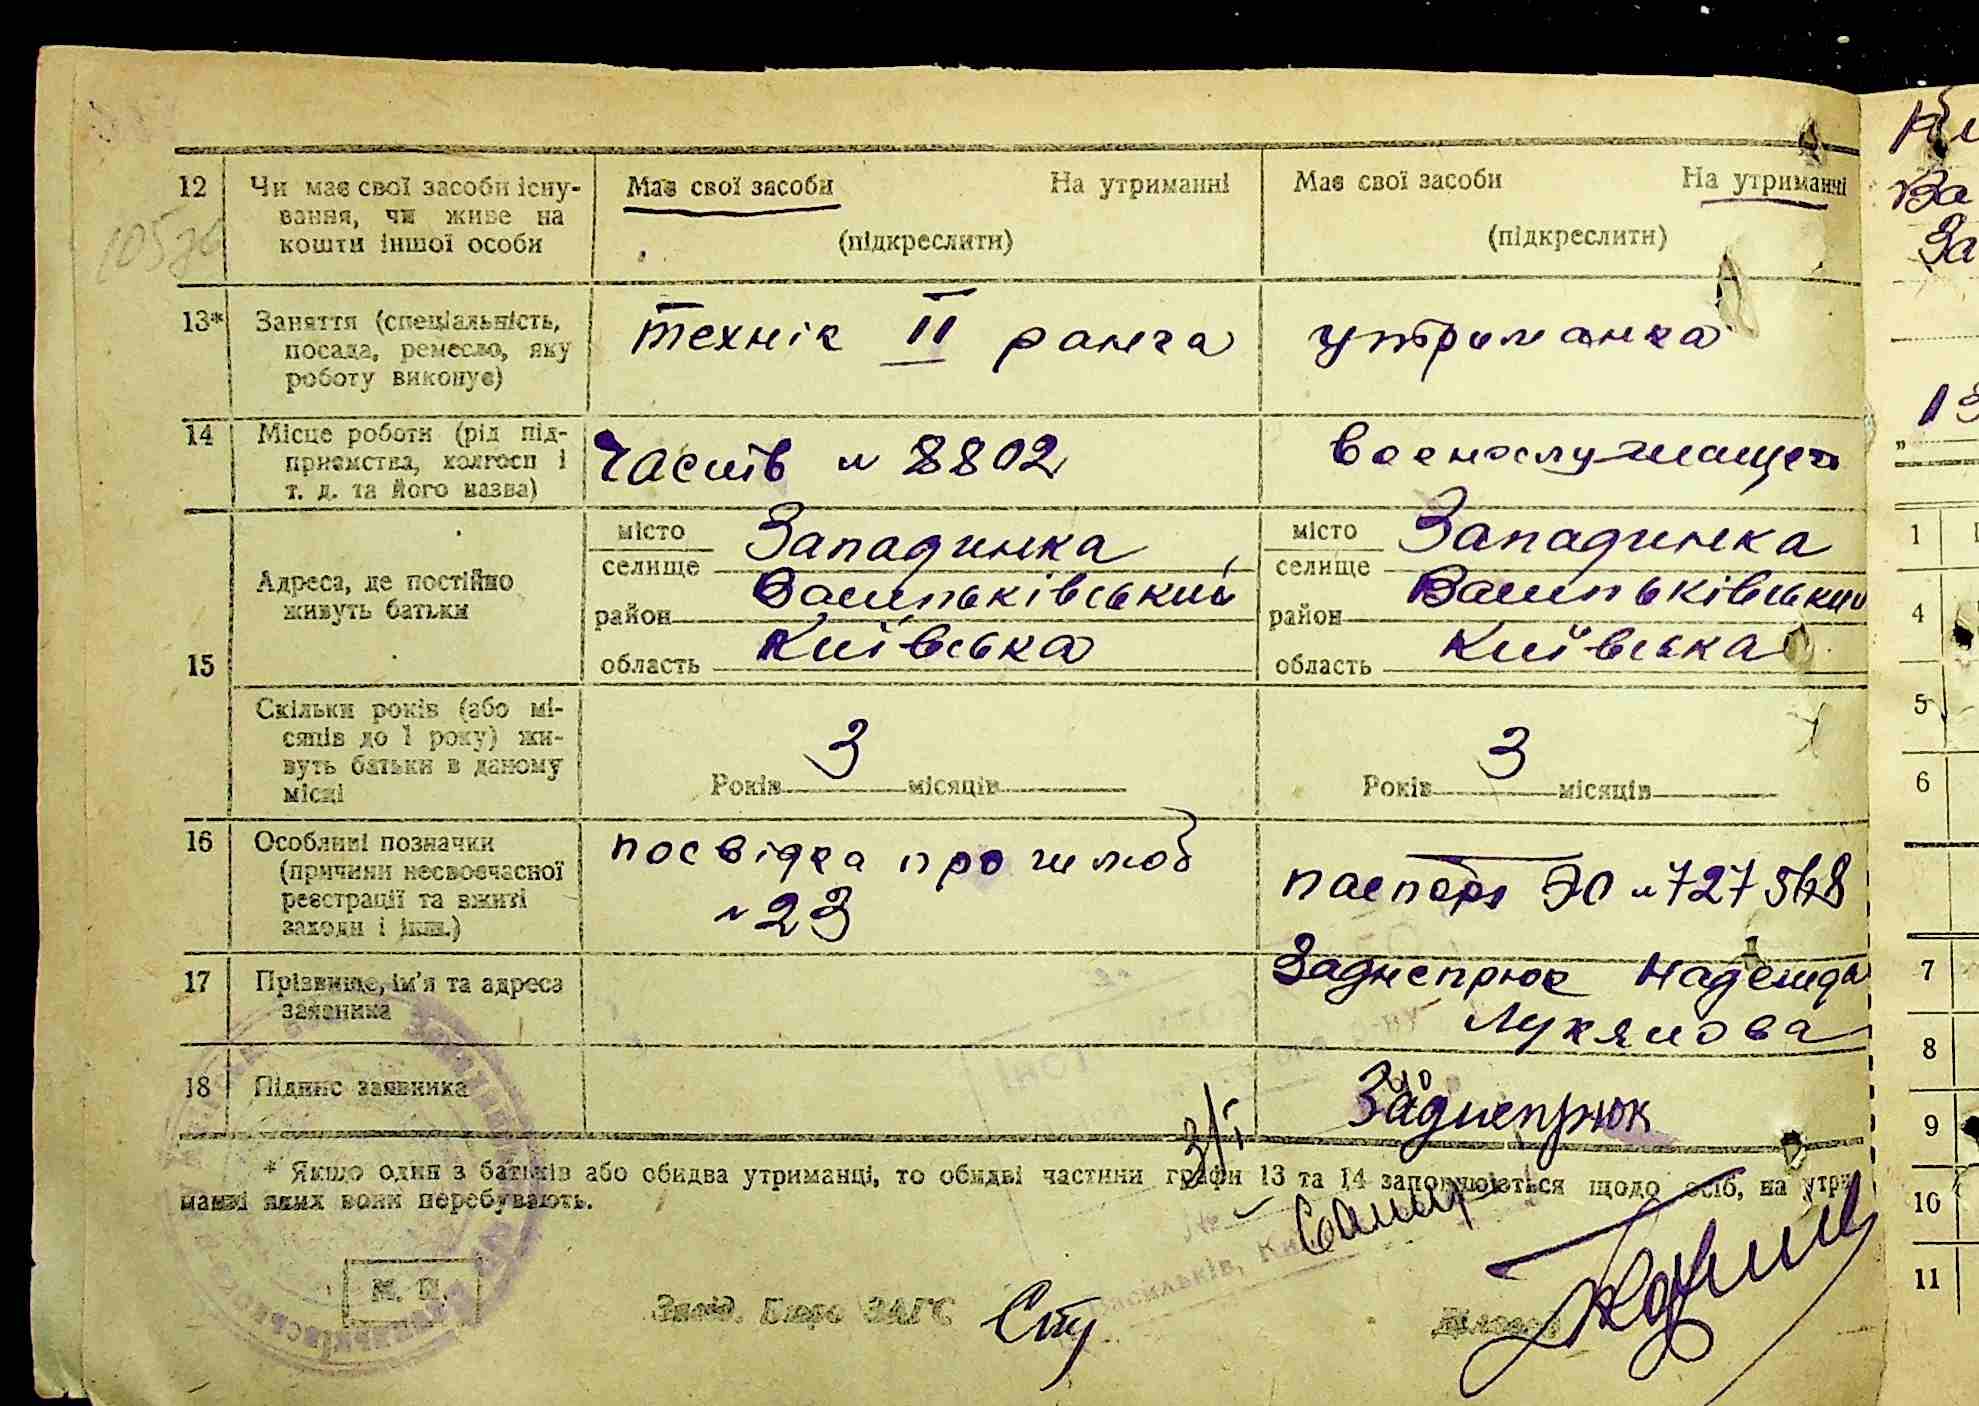 12 Чи має свої засоби існу- Має свої засоби На утриманні Має свої засоби На утриманні
вання, чи живе на
кошти іншої особи (підкреслити) (підкреслити)
13* Заняття (спеціальність,
посада, ремесло, яку технік II ранга утриманка
роботу виконує)
14 Місце роботи (рід під-
приємства, колгосп і частів № 8802 воєнослужащего
т. д. та його назва)
15 Адреса, де постійно
живуть батьки
місто Западинка місто Западинка
селище селище
район Васильківський район Васильківський
область Київська область Київська
Скільки років (або мі-
сяців до 1 року) жи-
вуть батьки в даному
місці
Років 3 місяців Років 3 місяців
16 Особливі позначки посвідка про шлюб
(причини несвоєчасної № 23 паспорт №727568
реєстрації та вжиті
заходи і інш.)
17 Прізвище, ім'я та адреса Заднепрюк Надежда
заявника Лукянова
18 Підпис заявника Заднепрюк
* Якщо один з батьків або обидва утриманці, то обидві частини графи 13 та 14 заповнюються щодо осіб, на утри
манні яких вони перебувають.
М. П.
Завід. Бюро ЗАГС Діловод
1
4
5
6
7
8
9
10
11